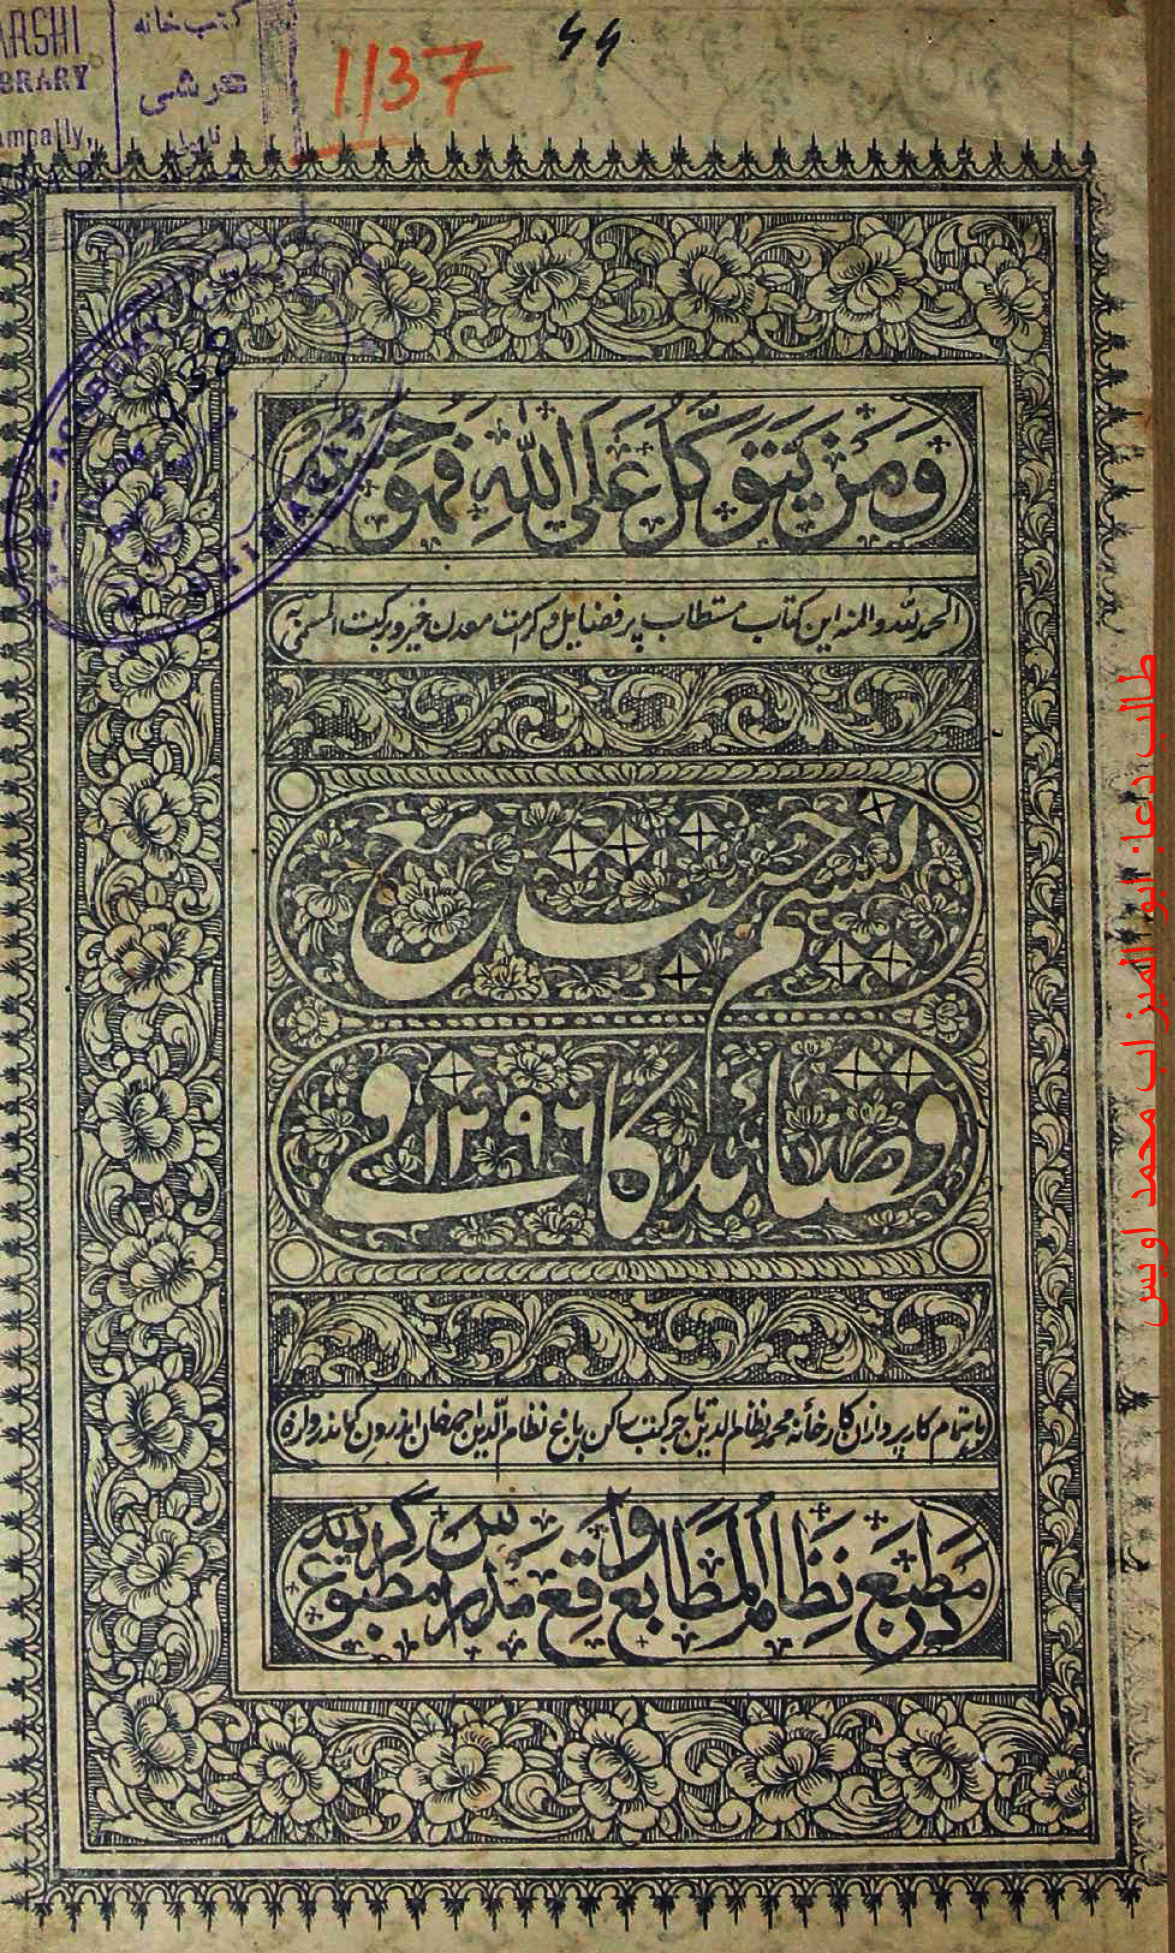 ARSHI
BRARY
کتب خانه
عرشی
1137
وَمَنْ يَتَوَكَّلْ عَلَى اللّٰهِ فَهُوَ حَسْبُهُ
الحمدلله والمنه این کتاب مستطاب پر فضایل و کرامت معدن خیر و برکت المسمی به
نسیم چشت مع
قصائد کافی ۱۲۹۶
باهتمام کارپردازان کارخانه محمد نظام الدین تاجر کتب ساکن باغ نظام الدین احمد خان اندرون کمان
در مطبع نظام المطابع واقع مدراس مطبوع گردید
طالب دعا: ابو المیزاب محمد اویس